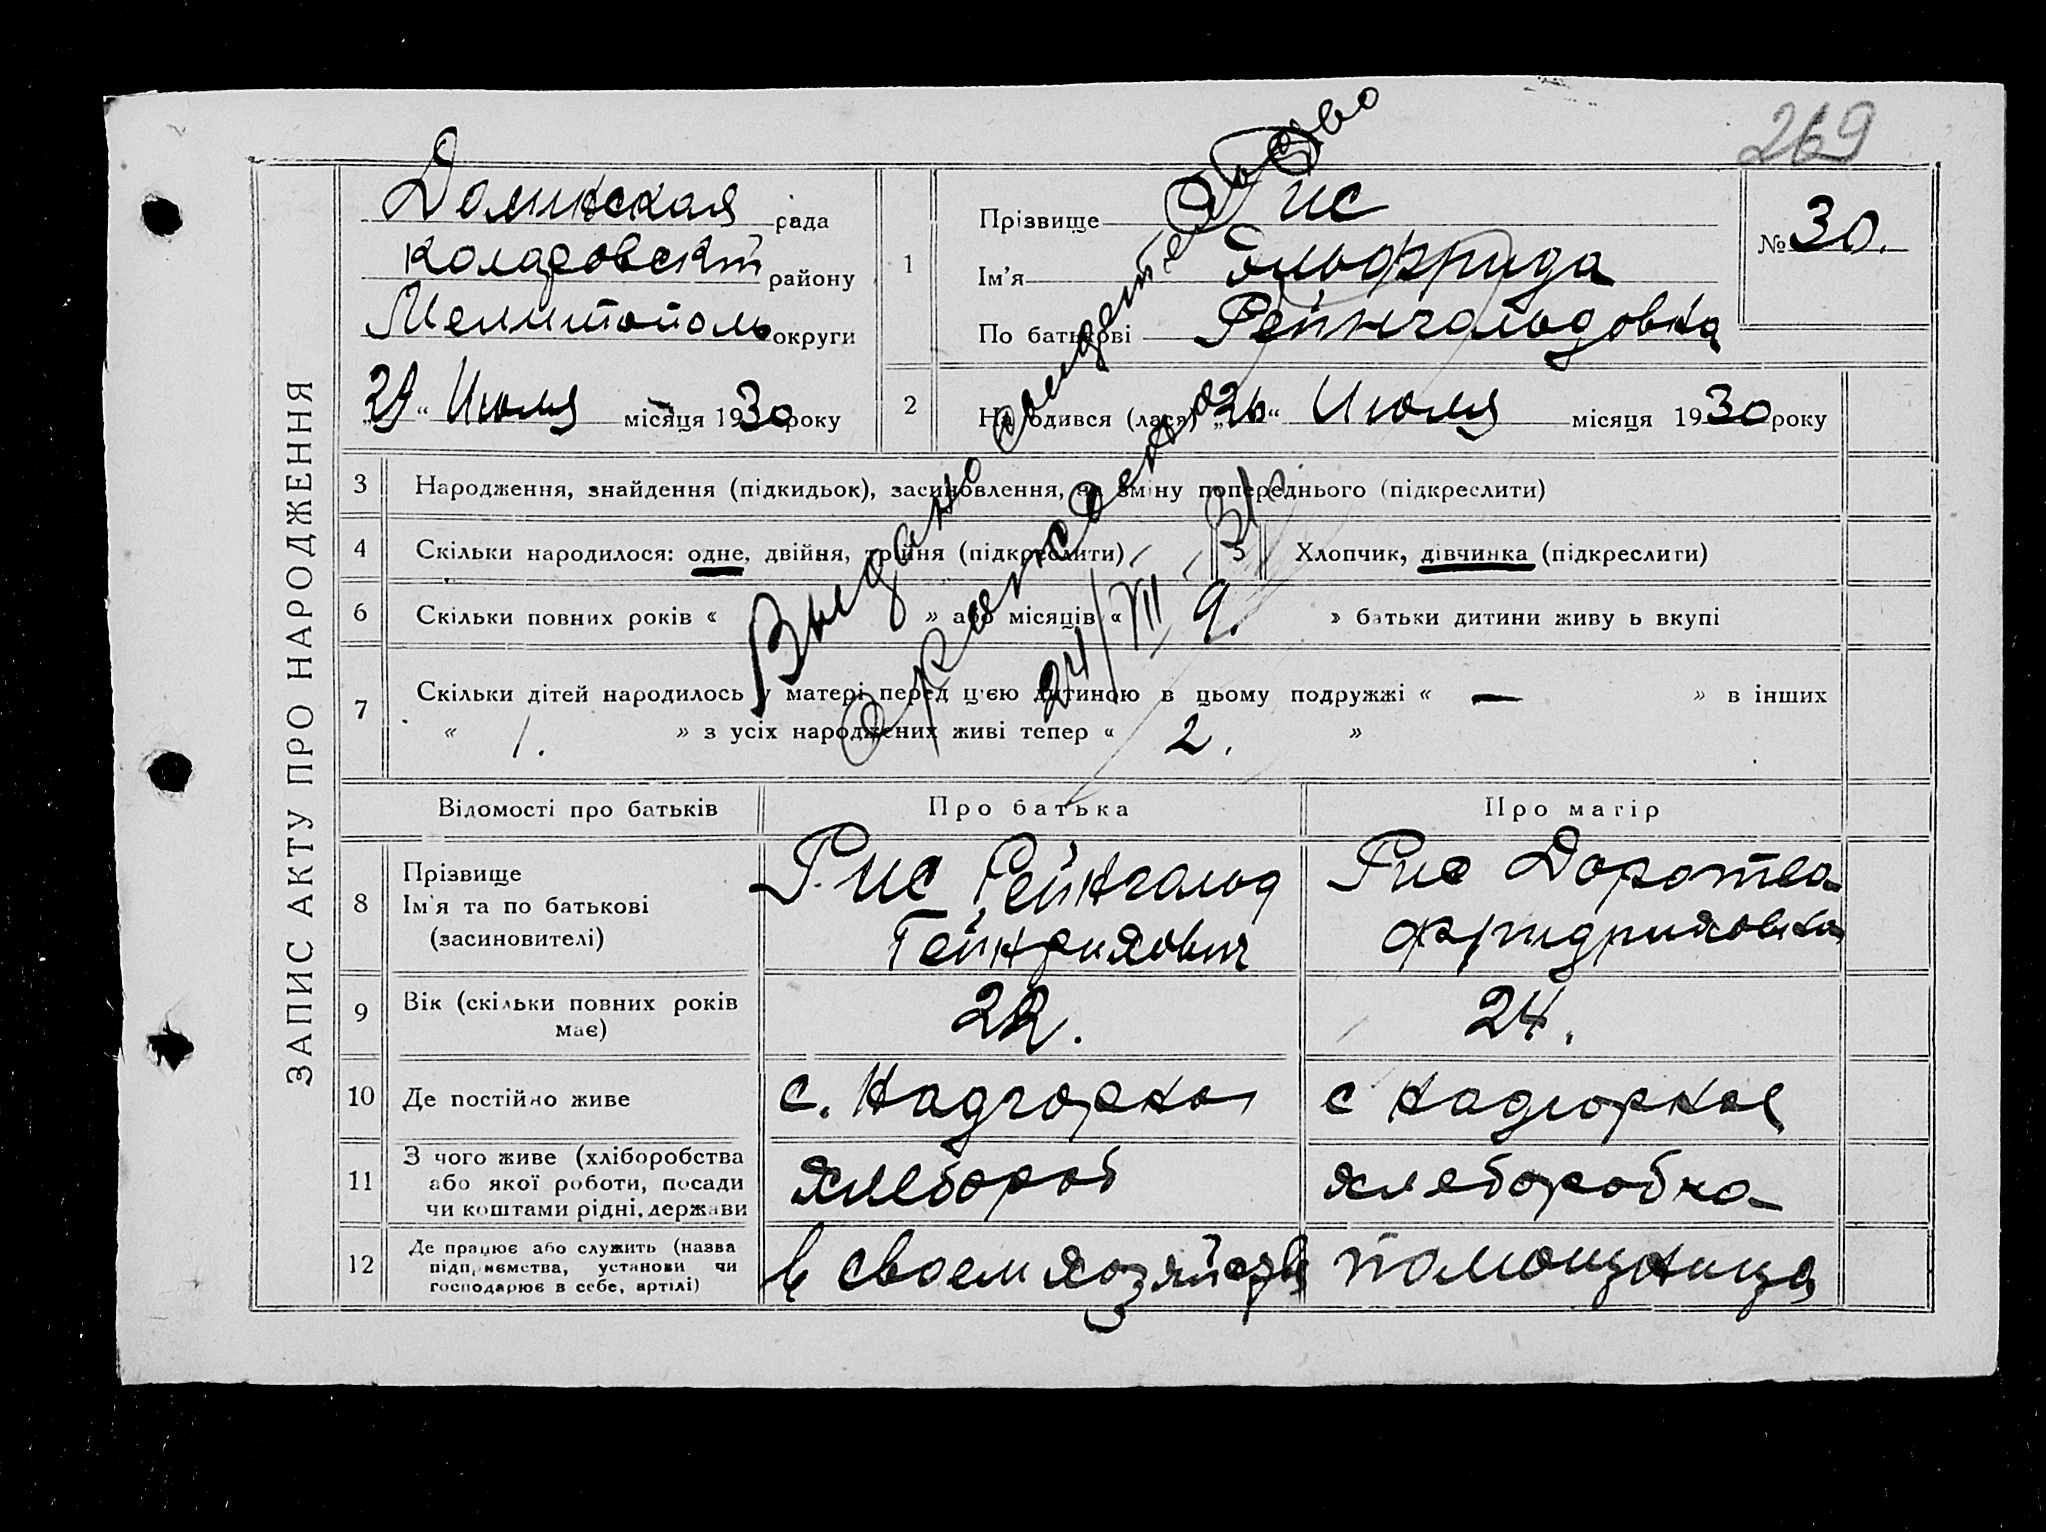 269
ЗАПИС АКТУ ПРО НАРОДЖЕННЯ
Долинская рада
Коларовский району
Мелитополь округи
„29“ Июля місяця 1930 року
1
Прізвище Рис
Ім'я Эльфрида
По батькові Рейнгольдовна
№ 30.
2
Народився (лася) „26“ Июля місяця 1930 року
3 Народження, знайдення (підкидьок), засиновлення, чи зміну попереднього (підкреслити)
4 Скільки народилося: одне, двійня, трійня (підкреслити)
5 Хлопчик, дівчинка (підкреслити)
6 Скільки повних років « » або місяців « 9. » батьки дитини живу ь вкупі
7 Скільки дітей народилось у матері перед цією дитиною в цьому подружжі « — » в інших
« 1. » з усіх народжених живі тепер « 2. »
Выдано свидетельство
24/VII
Відомості про батьків Про батька Про матір
8 Прізвище
Ім'я та по батькові
(засиновителі)
Рис Рейнгольд
Гейнрихович
Рис Доротеа
Фридриховна
9 Вік (скільки повних років
має)
22. 24.
10 Де постійно живе с. Надгорное с Надгорное
11 З чого живе (хліборобства
або якої роботи, посади
чи коштами рідні, держави
хлебороб хлеборобка
12 Де працює або служить (назва
підприємства, установи чи
господарює в себе, артілі)
в своем хозяйстве помощница